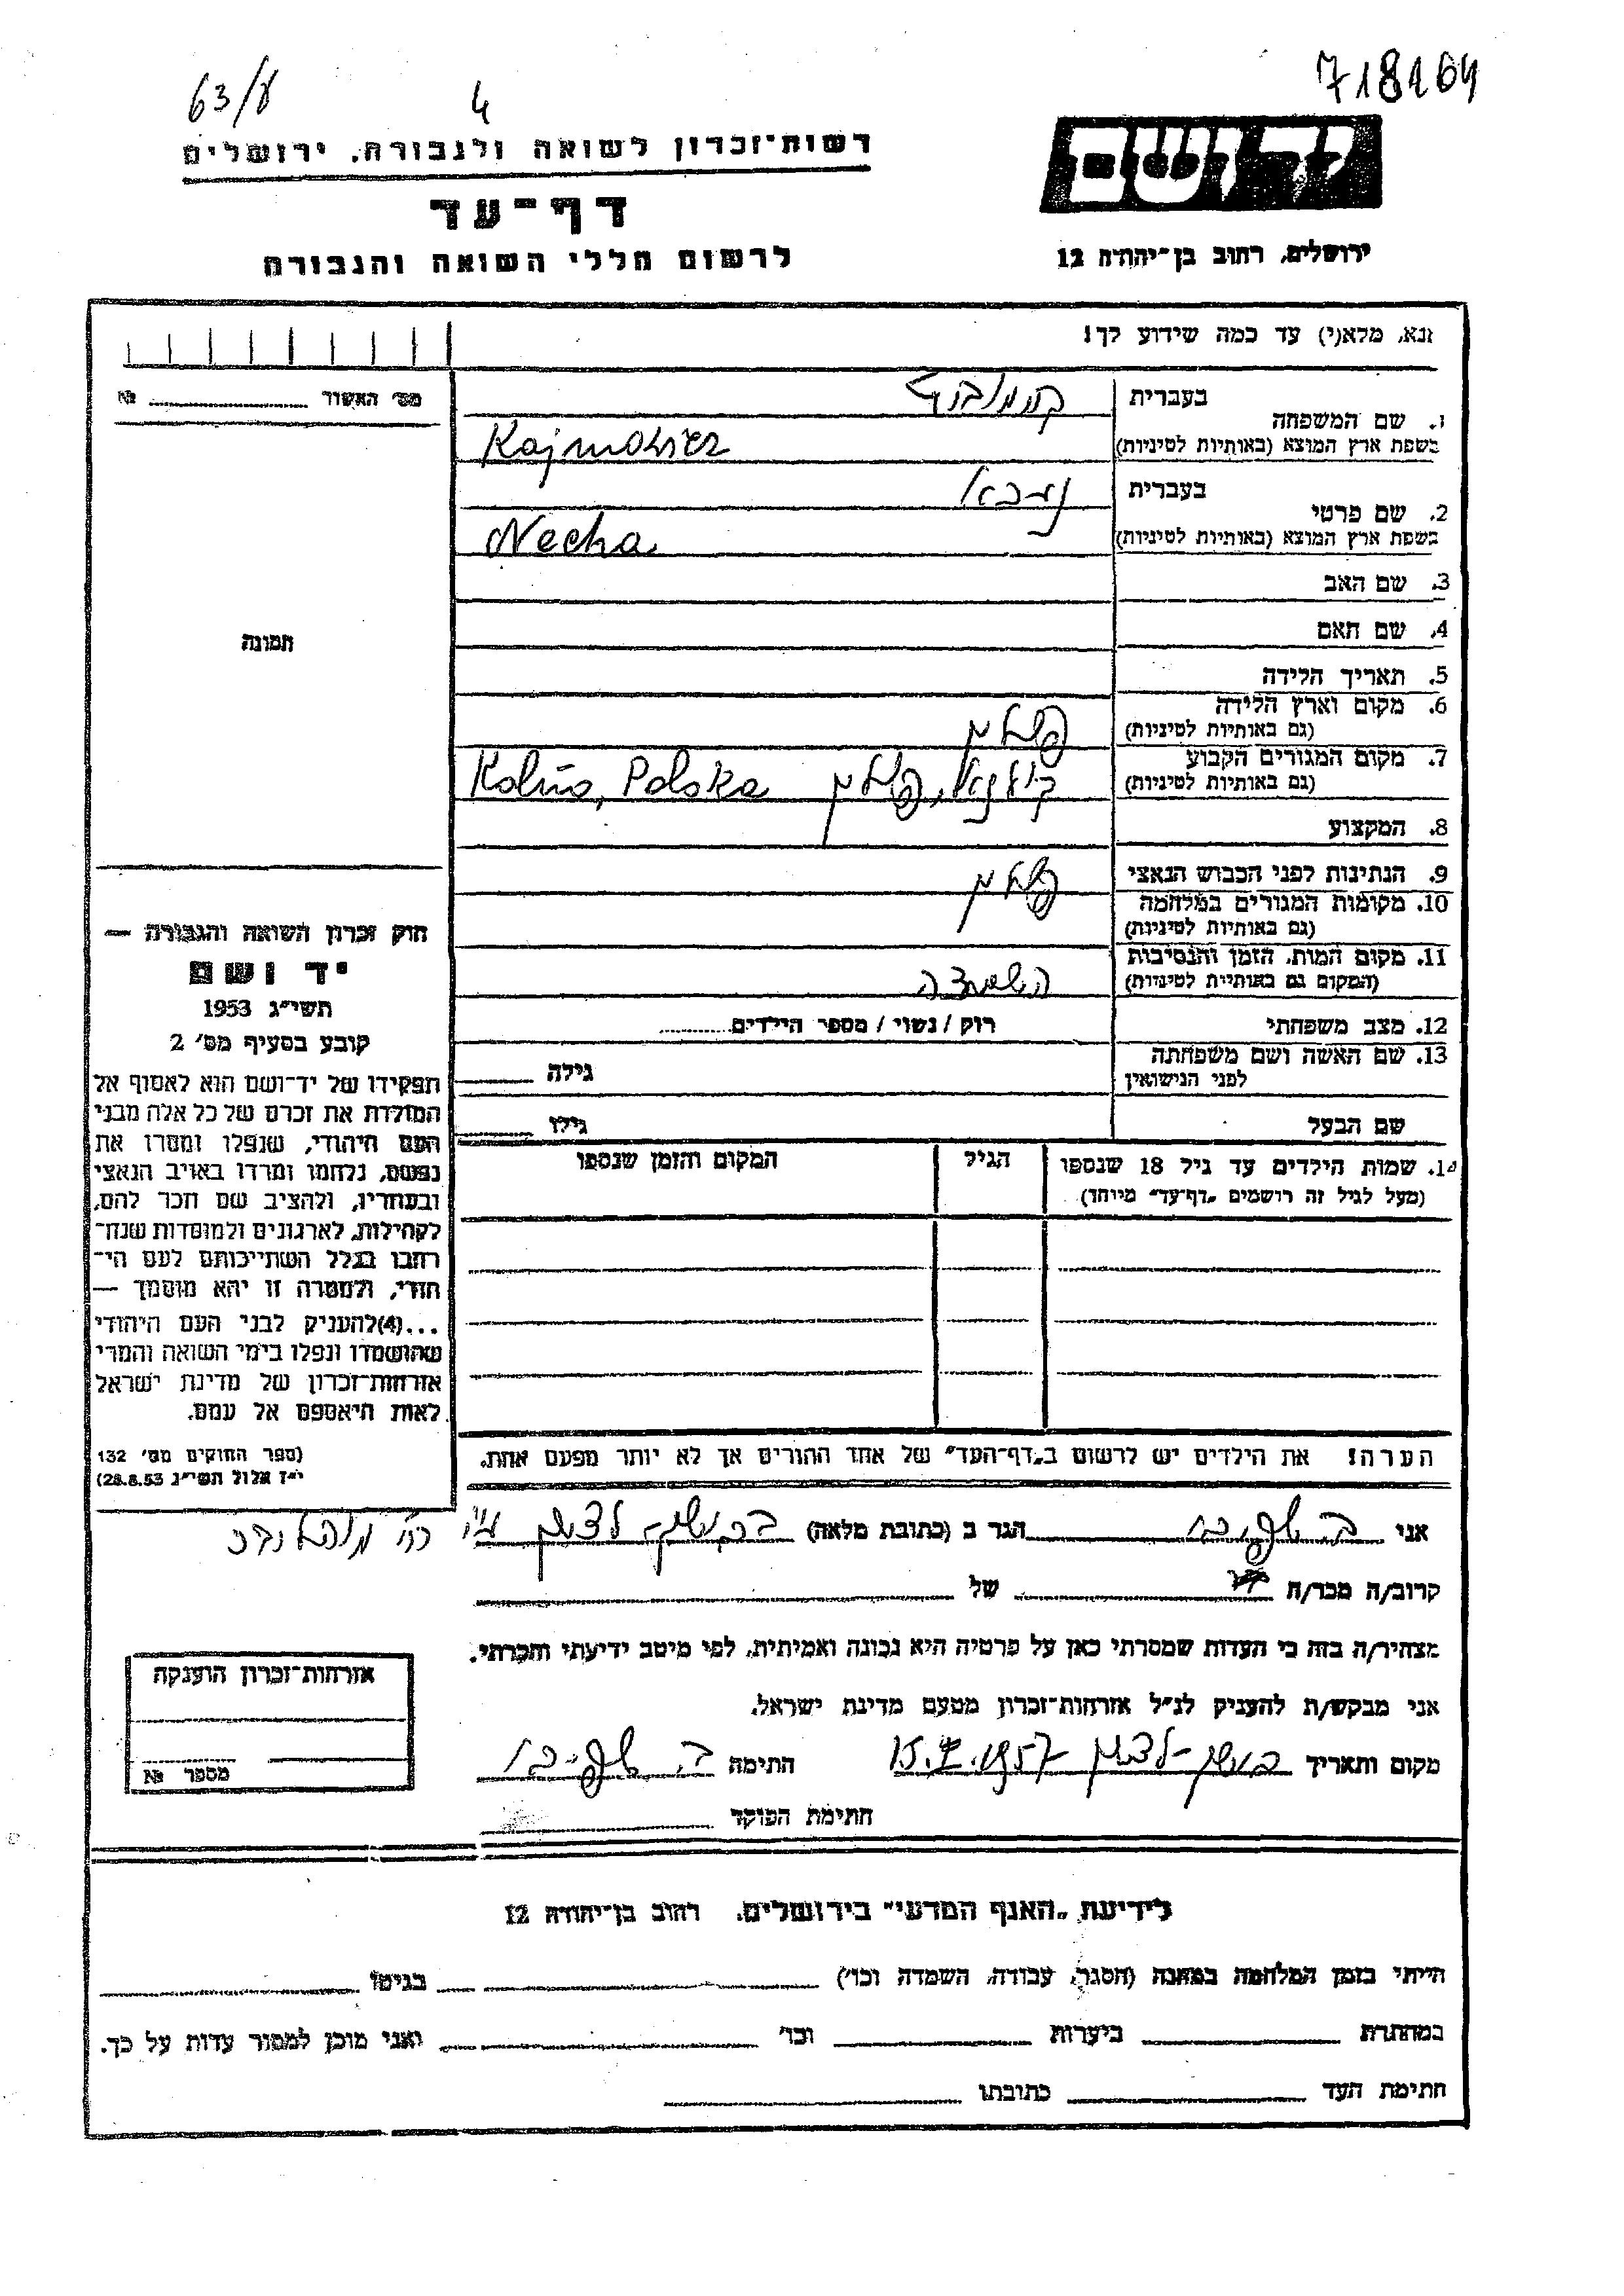 63/8 4 718164
רשות־זכרון לשואה ולגבורה, ירושלים
יד ושם
דף־עד
לרשום חללי השואה והגבורה
ירושלים, רחוב בן־יהודה 12
נא, מלא(י) עד כמה שידוע לך!
מס׳ האשור № 
1. שם המשפחה
בעברית
בשפת ארץ המוצא (באותיות לטיניות)
2. שם פרטי
בעברית נחא
בשפת ארץ המוצא (באותיות לטיניות) Necha
3. שם האב
4. שם האם
5. תאריך הלידה
6. מקום וארץ הלידה פולין
(גם באותיות לטיניות)
7. מקום המגורים הקבוע פולין Polska
(גם באותיות לטיניות)
8. המקצוע
9. הנתינות לפני הכבוש הנאצי פולין
10. מקומות המגורים במלחמה
(גם באותיות לטיניות)
11. מקום המות, הזמן והנסיבות
(המקום גם באותיות לטיניות) השמדה
12. מצב משפחתי רוק / נשוי / מספר הילדים
13. שם האשה ושם משפחתה גילה
לפני הנישואין
שם הבעל גילו
תמונה
חוק זכרון השואה והגבורה —
יד ושם
תשי״ג 1953
קובע בסעיף מס׳ 2
תפקידו של יד־ושם הוא לאסוף אל
המולדת את זכרם של כל אלה מבני
העם היהודי, שנפלו ומסרו את
נפשם, נלחמו ומרדו באויב הנאצי
ובעוזריו, ולהציב שם וזכר להם,
לקהילות, לארגונים ולמוסדות שנח־
רבו בגלל השתייכותם לעם הי־
הודי, ולמטרה זו יהא מוסמך —
...(4)להעניק לבני העם היהודי
שהושמדו ונפלו בימי השואה והמרי
אזרחות־זכרון של מדינת ישראל
לאות היאספם אל עמם.
(ספר החוקים מס׳ 132
י״ז אלול תשי״ג 28.8.53)
14. שמות הילדים עד גיל 18 שנספו הגיל המקום והזמן שנספו
(מעל לגיל זה רושמים „דף־עד״ מיוחד)
הערה! את הילדים יש לרשום ב„דף־העד״ של אחד ההורים אך לא יותר מפעם אחת.
אני הגר ב (כתובת מלאה)
קרוב/ה מכר/ה של
מצהיר/ה בזה כי העדות שמסרתי כאן על פרטיה היא נכונה ואמיתית, לפי מיטב ידיעתי והכרתי.
אני מבקש/ת להעניק לנ״ל אזרחות־זכרון מטעם מדינת ישראל.
מקום ותאריך ראשון־לציון 1957 חתימה
חתימת הפוקד
אזרחות־זכרון הוענקה
מספר №
לידיעת „האגף המדעי״ בירושלים, רחוב בן־יהודה 12
הייתי בזמן המלחמה במחנה (הסגר, עבודה, השמדה וכו׳) בגיטו
במחתרת ביערות וכו׳ ואני מוכן למסור עדות על כך.
חתימת העד כתובתו